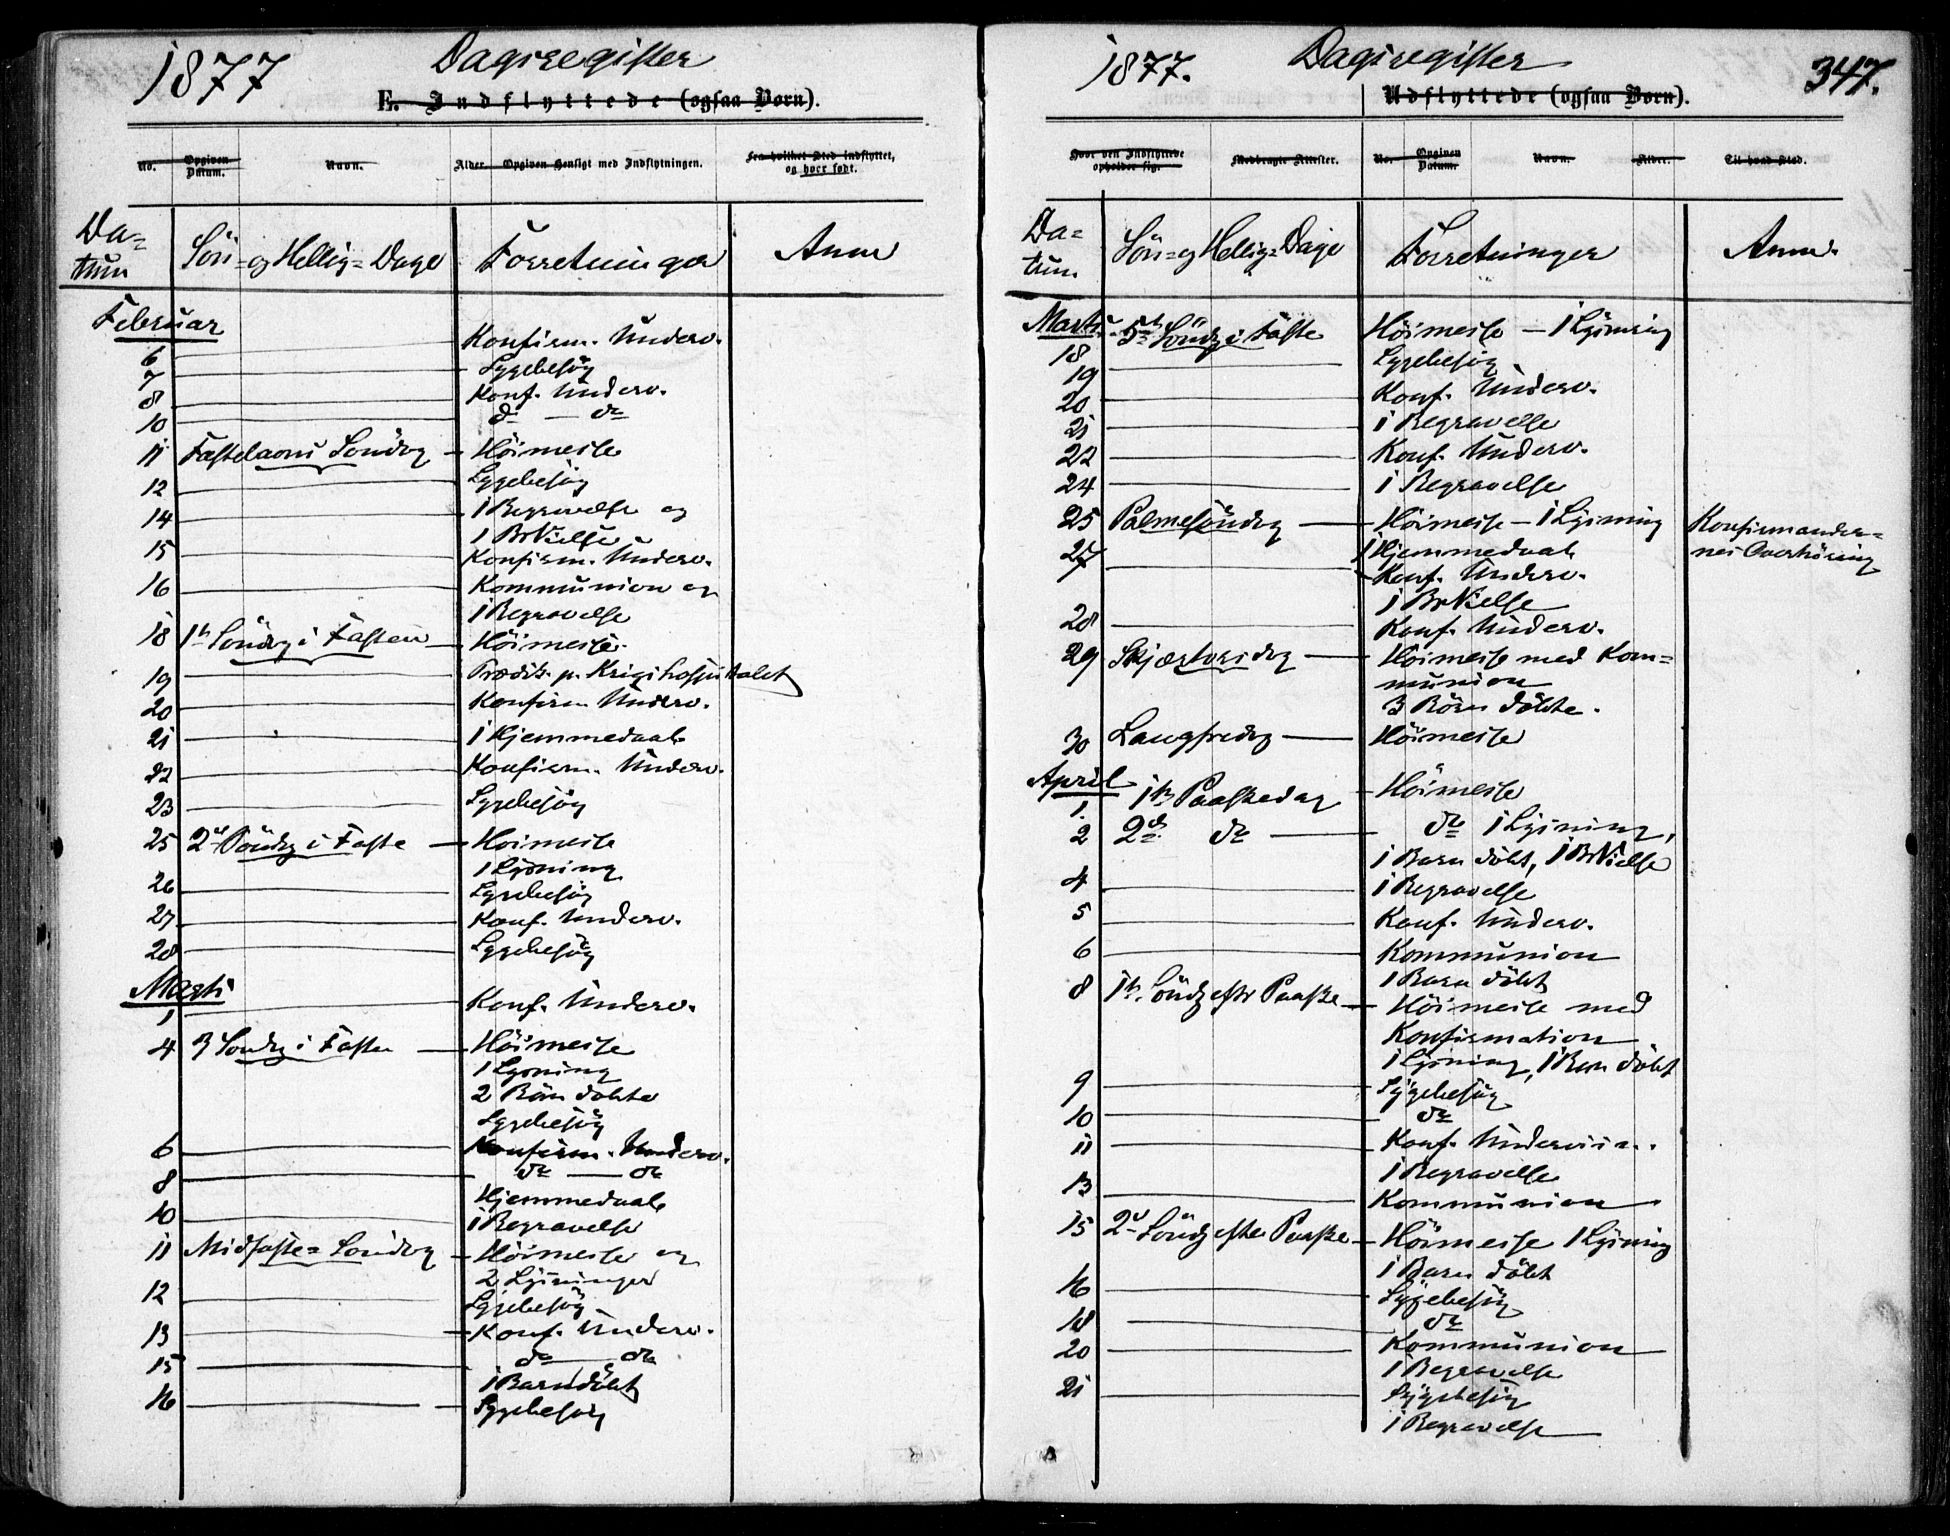 1877 Dagsregister
E. Indflyttede (ogsaa Børn).
No. Opgiven Datum. Navn. Alder. Opgiven Hensigt med Indflytningen. Fra hvilket Sted indflyttet, og hvor født.
Datum Søn- og Hellig-Dage Forretninger Anm
Februar
6 Konfirm. Underv.
7 Sygebesøg
8 Konf. Underv.
10 do — do
11 Fastelavns Søndag Höimesse
12 Sygebesøg
14 1 Begravelse og
1 BrVielse
15 Konfirm. Underv.
16 Kommunion og
1 Begravelse
18 1ste Søndag i Fasten Höimesse
19 Prædik. p. Krigshospitalet
20 Konfirm Underv.
21 1 Hjemmedaab
22 Konfirm. Underv.
23 Sygebesøg
25 2den Søndag i Faste Höimesse
1 Lysning
26 Sygebesøg
27 Konf. Underv.
28 Sygebesøg
Marts
1 Konf. Underv.
4 3 Søndag i Faste Höimesse
1 Lysning
2 Börn döbte
Sygebesøg
6 Konfirm. Underv.
8 do — do
Hjemmedaab
10 1 Begravelse
11 Midfaste-Søndag Höimesse og
2 Lysninger
12 Sygebesøg
13 Konf. Underv.
15 do — do
1 Barn döbt
16 Sygebesøg
1877. Dagsregister 347.
Udflyttede (ogsaa Børn).
Hvor den Indflyttede opholder sig. Medbragte Attester. No. Opgiven Datum. Navn. Alder. Til hvad Sted.
Datum Søn- og Hellig-Dage Forretninger Anm.
Marts
18 5te Søndag i Faste Höimesse — 1 Lysning
19 Sygebesøg
20 Konf. Underv.
21 1 Begravelse
22 Konf. Underv.
24 1 Begravelse
25 Palmesøndag Höimesse — 1 Lysning Konfirmander-
nes Overhøring
27 1 Hjemmedaab
Konf. Underv.
1 BrVielse
28 Konf. Underv.
29 Skjærtorsdag Höimesse med Kom-
munion
3 Börn döbte.
30 Langfredag Höimesse
April
1. 1ste Paaskedag Höimesse
2 2den do do 1 Lysning,
1 Barn döbt, 1 BrVielse
4 1 Begravelse
5 Konf. Underv.
6 Kommunion
1 Barn döbt
8 1ste Søndag efter Paaske Höimesse med
Konfirmation
1 Lysning, 1 Barn döbt
9 Sygebesøg
10 do
11 Konf. Undervisn.
1 Begravelse
13 Kommunion
15 2den Søndag efter Paaske Höimesse 1 Lysning
1 Barn döbt
16 Sygebesøg
18 do
20 Kommunion
1 Begravelse
21 Sygebesøg
1 Begravelse